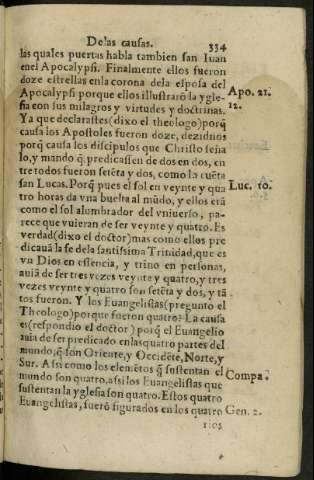 De las causas. 334
las quales puertas habla tambien san Iuan
enel Apocalypsi. Finalmente ellos fueron
doze estrellas enla corona dela esposa del
Apocalypsi porque ellos illustrarõ la ygle- Apo. 21.
sia con sus milagros y virtudes y doctrinas. 12.
Ya que declarastes (dixo el theologo) porq̃
causa los Apostoles fueron doze, dezidnos
porq̃ causa los discipulos que Christo seña
lo, y mando q̃ predicassen de dos en dos, en
tre todos fueron setẽta y dos, como la cuẽta
san Lucas. Porq̃ pues el sol en veynte y qua Luc. 10.
tro horas da vna buelta al mũdo, y ellos erã
como el sol alumbrador del vniuerso, pa-
rece que vuieran de ser veynte y quatro. Es
verdad (dixo el doctor) mas como ellos pre
dicauã la fe dela santissima Trinidad, que es
vn Dios en essencia, y trino en personas,
auiã de ser tres vezes veynte y quatro, y tres
vezes veynte y quatro son setẽta y dos, y tã
tos fueron. Y los Euangelistas (pregunto el
Theologo) porque fueron quatro? La causa
es (respondio el doctor) porq̃ el Euangelio
auia de ser predicado enlas quatro partes del
mundo, q̃ son Oriente, y Occidẽte, Norte, y
Sur. Assi como los elemẽtos q̃ sustentan el
mundo son quatro, assi los Euangelistas que Compa.
sustentan la yglesia son quatro. Estos quatro
Euangelistas, fuerõ figurados en los quatro Gen. 2.
rios